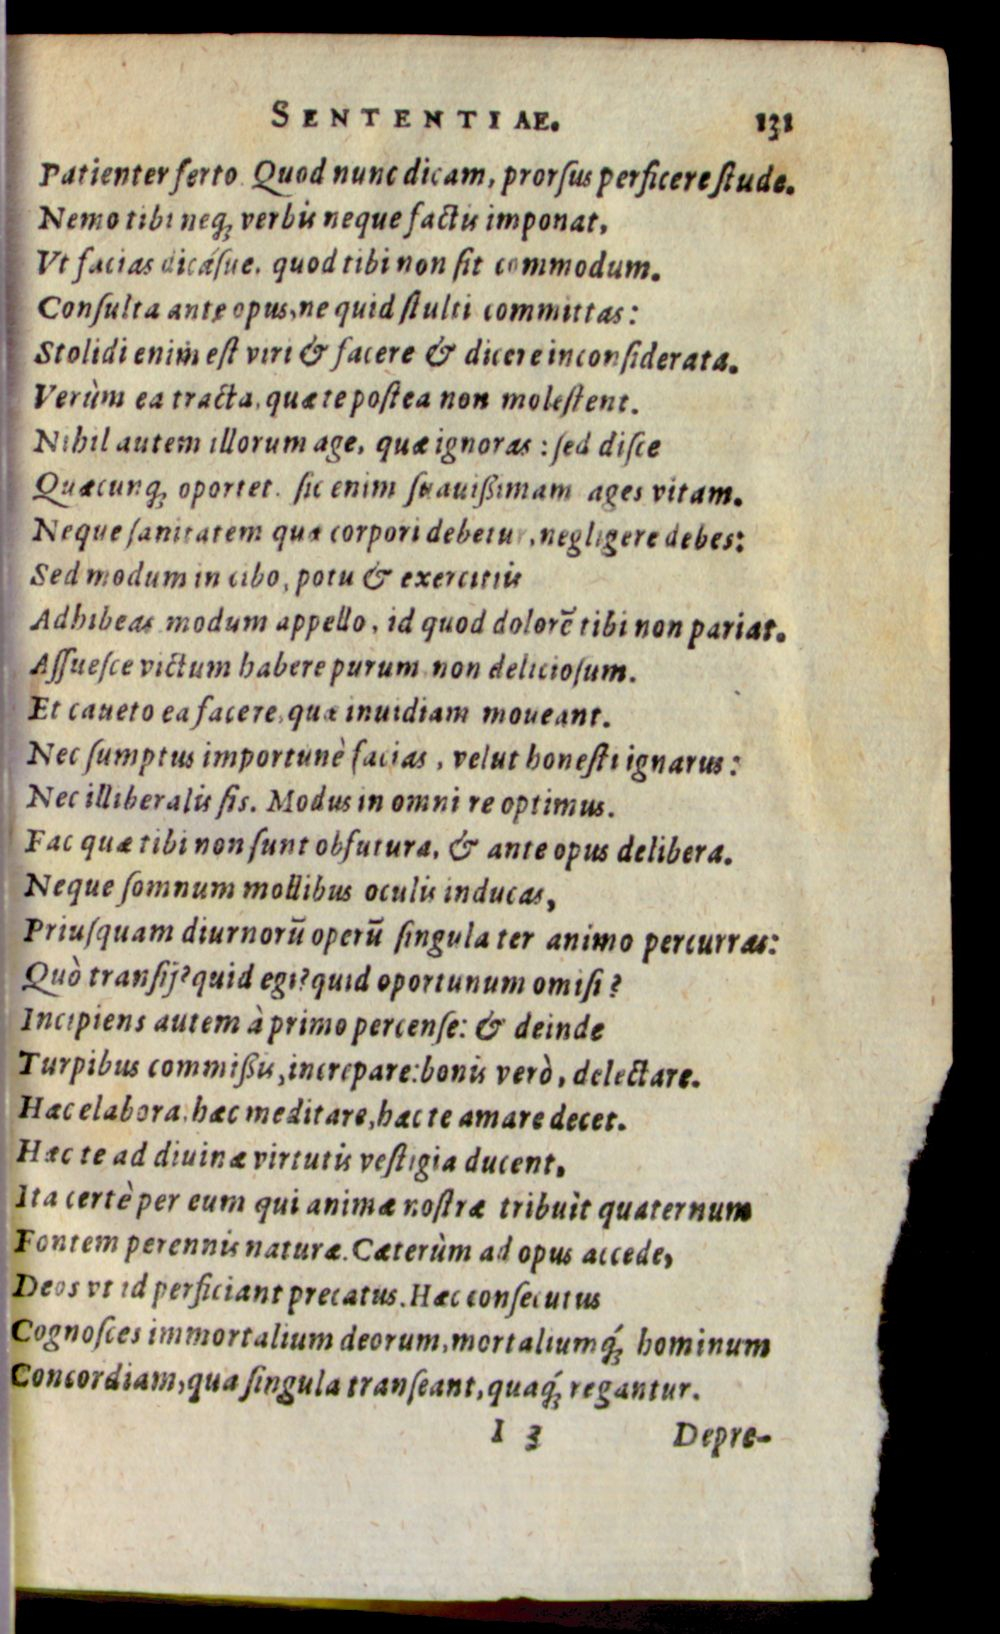 SENTENTIAE. 131
Patienter ferto. Quod nunc dicam, prorſus perficere ſtude.
Nemo tibi neq; verbis neque factis imponat,
Vt facias dicáſue, quod tibi non ſit commodum.
Conſulta ante opus, ne quid ſtulti committas:
Stolidi enim eſt viri & facere & dicere inconſiderata.
Verùm ea tracta, quæ te poſtea non moleſtent.
Nihil autem illorum age, quæ ignoras: ſed diſce
Quæcunq; oportet. ſic enim ſuauißimam ages vitam.
Neque ſanitatem quæ corpori debetur, negligere debes:
Sed modum in cibo, potu & exercitiis
Adhibeas. modum appello, id quod dolorē tibi non pariat.
Aſſueſce victum habere purum non delicioſum.
Et caueto ea facere, quæ inuidiam moueant.
Nec ſumptus importunè facias, velut honeſti ignarus:
Nec illiberalis ſis. Modus in omni re optimus.
Fac quæ tibi non ſunt obfutura, & ante opus delibera.
Neque ſomnum mollibus oculis inducas,
Priuſquam diurnorū operū ſingula ter animo percurras:
Quò tranſij? quid egi? quid oportunum omiſi?
Incipiens autem à primo percenſe: & deinde
Turpibus commißis, increpare: bonis verò, delectare.
Hæc elabora, hæc meditare, hæc te amare decet.
Hæc te ad diuinæ virtutis veſtigia ducent,
Ita certè per eum qui animæ noſtræ tribuit quaternum
Fontem perennis naturæ. Cæterùm ad opus accede,
Deos vt id perficiant precatus. Hæc conſecutus
Cognoſces immortalium deorum, mortaliumq́; hominum
Concordiam, qua ſingula tranſeant, quaq́; regantur.
I 3 Depre-